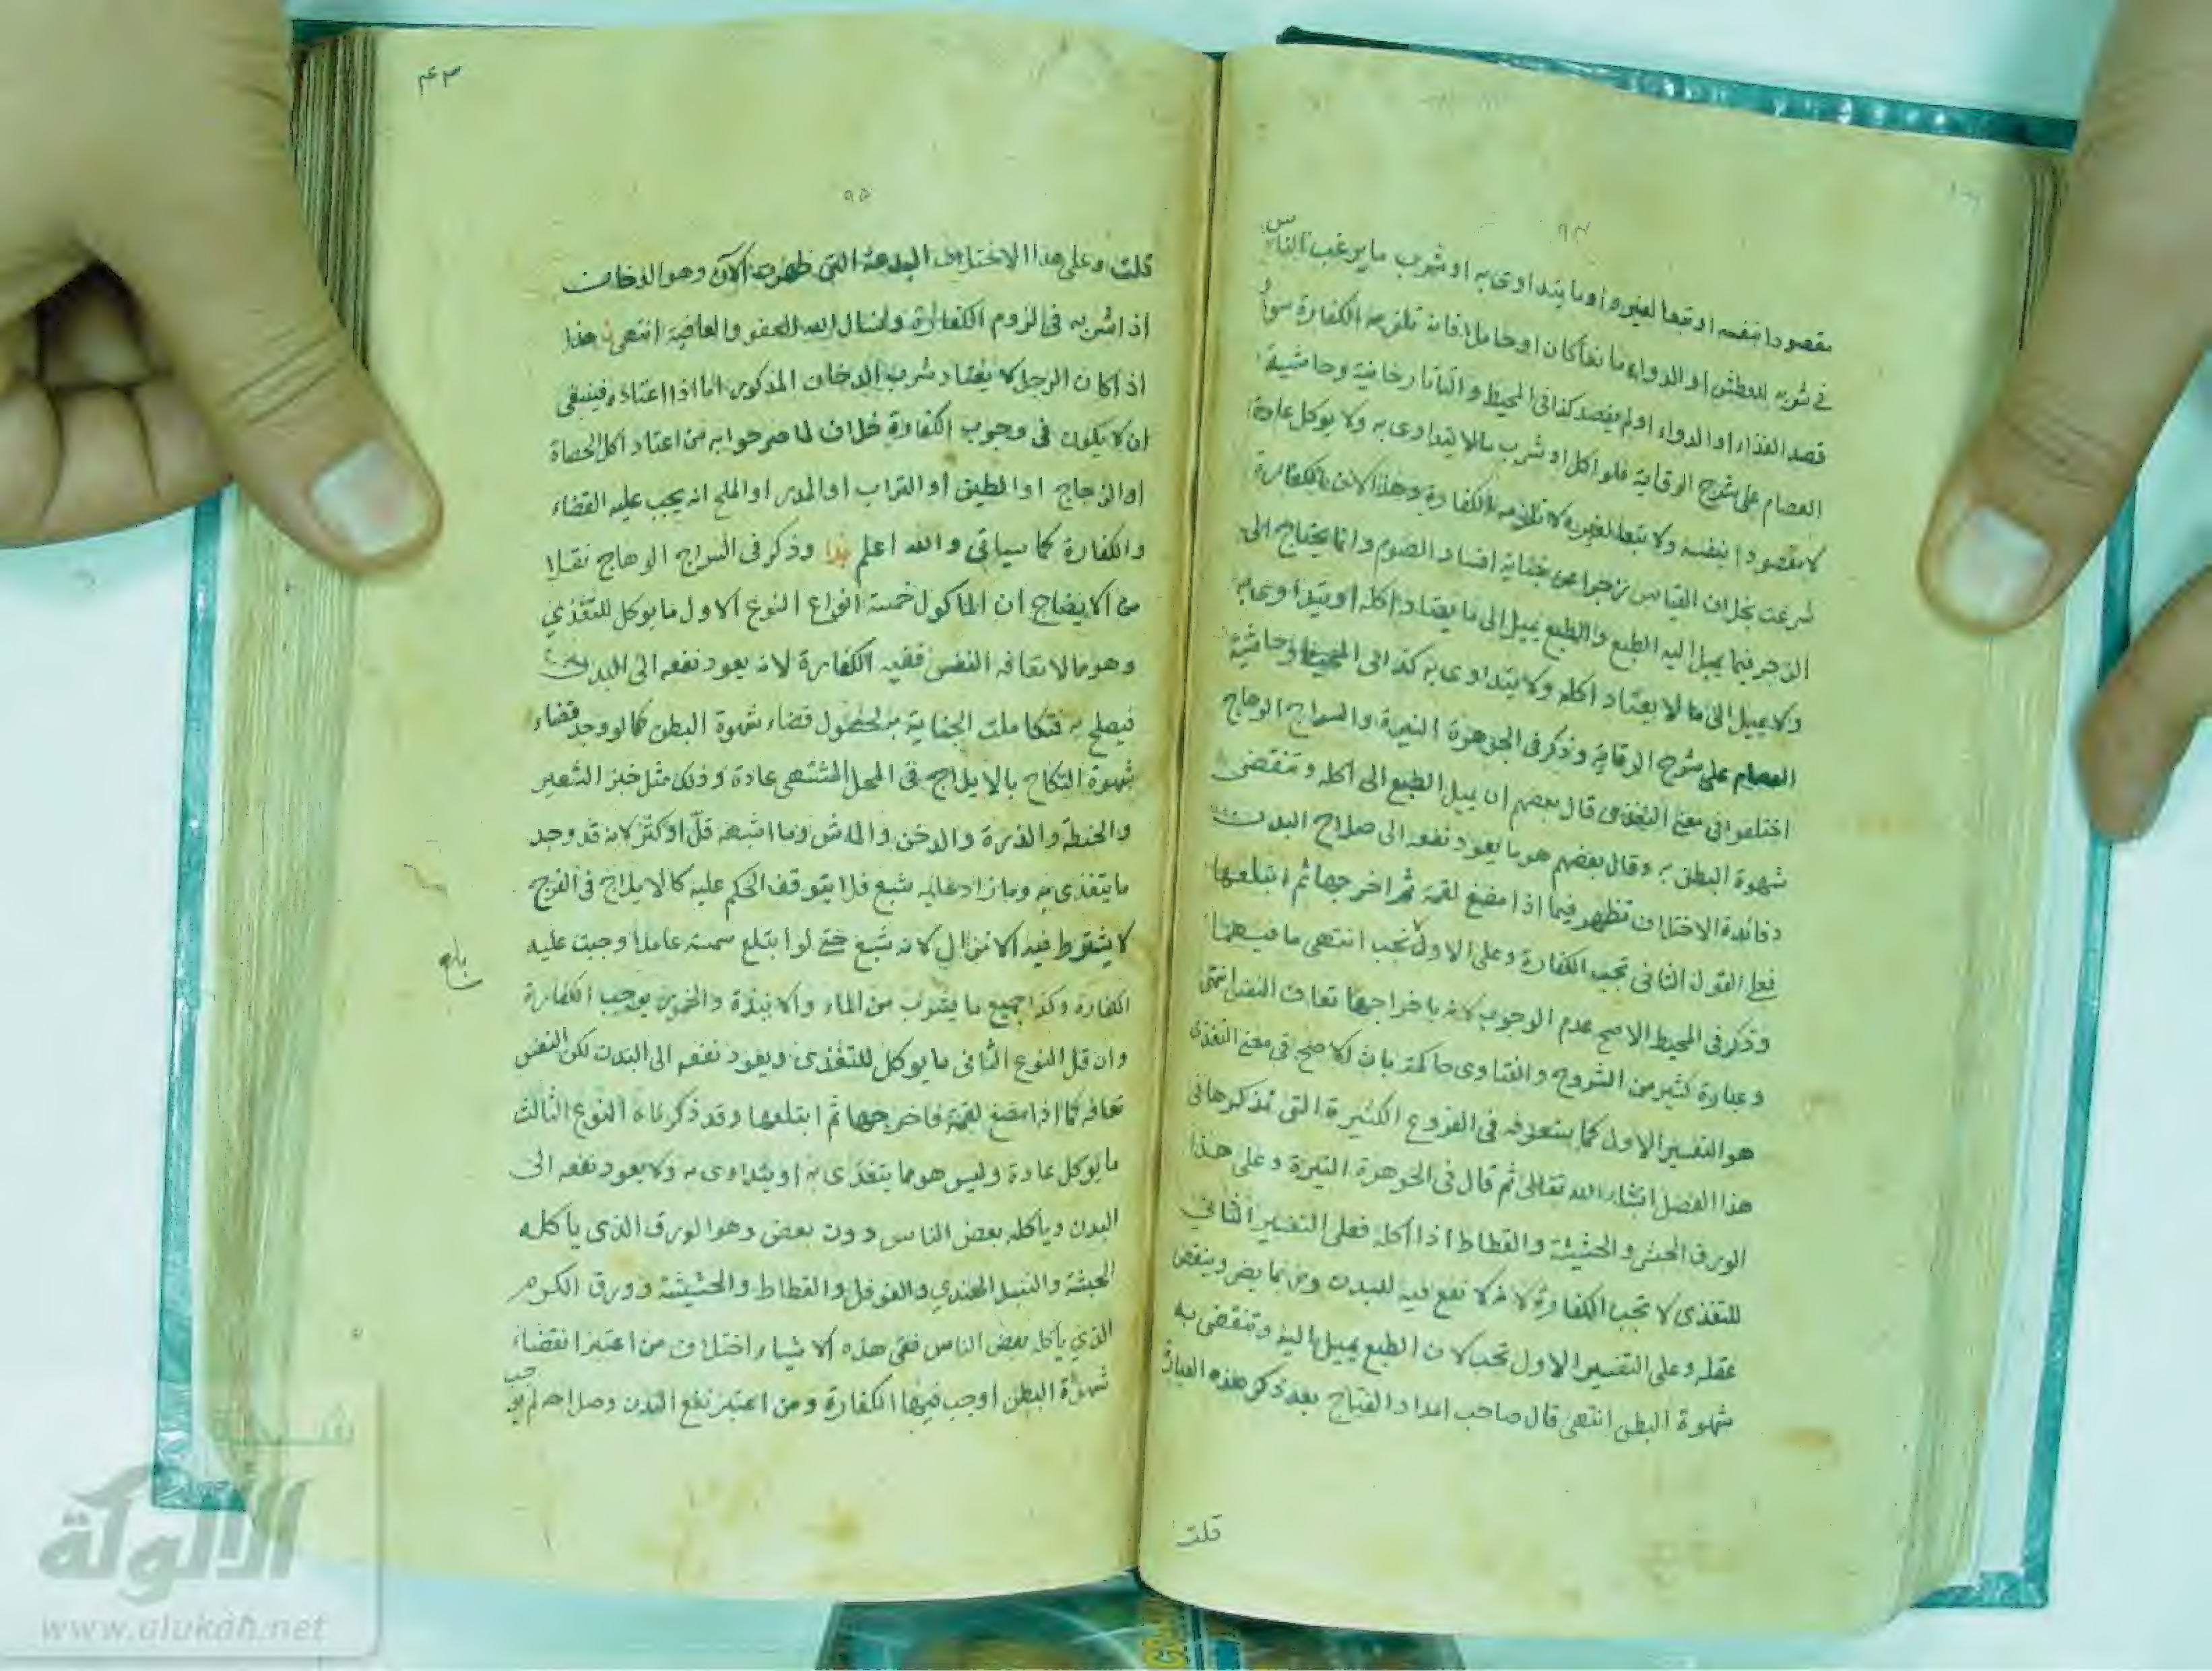 ٩٤
مقصودا بنفسه او تبعا لغيره او ما يتداوى به او شرب ما يرغب الناس
في شربه للعطش او الدواء ما نعا كان او حاملا فانه تلزمه الكفارة سواء
قصد الغذاء او الدواء او لم يقصد كذا في المحيط و التاتارخانية وحاشية
العصام على شرح الوقاية فلو اكل او شرب مالا يتداوى به ولا يوكل عادة
لا مقصودا بنفسه ولا تبعا لغيره لا تلزمه الكفارة وهذا لان الكفارة
شرعت بخلاف القياس زجرا عن جناية افساد الصوم وانما يحتاج الى
الزجر فيما يميل اليه الطبع والطبع يميل الى ما يعتاد اكله او يتداوى به
ولا يميل الى ما لا يعتاد اكله ولا يتداوى به كذا في المحيط وحاشية
العصام على شرح الوقاية وذكر في الجوهرة النيرة والسراج الوهاج
اختلفوا في معنى التغذى قال بعضهم ان يميل الطبع الى اكله وتنقضى
شهوة البطن به وقال بعضهم هو ما يعود نفعه الى صلاح البدن
وفائدة الاختلاف تظهر فيما اذا مضغ لقمة ثم اخرجها ثم ابتلعها
فعلى القول الثانى تجب الكفارة وعلى الاول لا تجب انتهى ما فيهما
وذكر في المحيط الاصح عدم الوجوب لانه باخراجها تعاف النفس انتهى
وعبارة كثير من الشروح والفتاوى حاكمة بان الاصح في معنى التغذى
هو التفسير الاول كما ستعرفه في الفروع الكثيرة التى نذكرها في
هذا الفصل انشاء الله تعالى ثم قال في الجوهرة النيرة وعلى هذا
الورق الحبشى والحشيشة والقطاط اذا اكله فعلى التفسير الثانى
للتغذى لا تجب الكفارة لانه لا نفع فيه للبدن وربما يضر وينقص
عقله وعلى التفسير الاول تجب لان الطبع يميل اليه وتنقضى به
شهوة البطن انتهى قال صاحب امداد الفتاح بعد ذكر هذه العبارة
قلت
٤٣
٩٥
قلت وعلى هذا الاختلاف البدعة التى ظهرت الآن وهو الدخان
اذا شربه في لزوم الكفارة ونسال الله العفو والعافية انتهى هذا
اذا كان الرجل لا يعتاد شرب الدخان المذكور اما اذا اعتاده فينبغى
ان لا يكون في وجوب الكفارة خلاف لما صرحوا به من اعتاد اكل الحصاة
او الزجاج او الطين او التراب او المدر او الملح انه يجب عليه القضاء
والكفارة كما سياتى والله اعلم هذا وذكر في السراج الوهاج نقلا
من الايضاح ان الماكول خمسة انواع النوع الاول ما يوكل للتغذي
وهو مالا تعافه النفس ففيه الكفارة لانه يعود نفعه الى البدن
فيصلح به فتكاملت الجناية بحصول قضاء شهوة البطن كما لو وجد قضاء
شهوة النكاح بالايلاج في المحل المشتهى عادة وذلك مثل خبز الشعير
والحنطة والذرة والدخن والماش وما اشبهه قلّ او كثر لانه قد وجد
ما يتغذى به وما زاد عليه شبع فلا يتوقف الحكم عليه كالايلاج في الفرج
لا يشترط فيه الانزال لانه شبع حتى لو ابتلع سمسة عامدا وجبت عليه
الكفارة وكذا جميع ما يشرب من الماء والانبذة والخمور يوجب الكفارة
وان قل النوع الثانى ما يوكل للتغذى ويعود نفعه الى البدن لكن النفس
تعافه كما اذا مضغ لقمة فاخرجها ثم ابتلعها وقد ذكرناه النوع الثالث
ما يوكل عادة وليس هو مما يتغذى به او يتداوى به ولا يعود نفعه الى
البدن وياكله بعض الناس دون بعض وهو الورق الذى ياكله
الحبشة والتنبل الهندي والفوفل والقطاط والحشيشة وورق الكرم
الذي ياكله بعض الناس ففى هذه الاشياء اختلاف من اعتبر انقضاء
شهوة البطن اوجب فيها الكفارة ومن اعتبر نفع البدن وصلاحه لم يوجب
شبكة
الألوكة
www.alukah.net